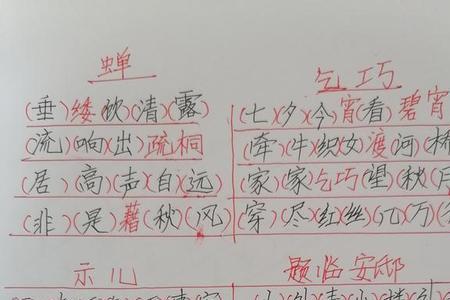 蝉
(垂)緌饮(清)(露)
(流)(响)(出)疏桐
(居)(高)(声)(自)(远)
(非)(是)藉(秋)(风)
乞巧
(七)(夕)(今)宵(看)碧宵
(牵)(牛)(织)(女)渡(河)(桥
(家)(家)乞巧(望)(秋)(月
(穿)(尽)(红)(丝)(几)(万)(
示儿
题临安邸